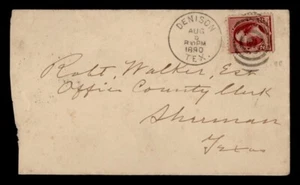 DENISON
AUG
1890
TEX.
Robt. Walker, Esq
Office County Clerk
Sherman
Texas